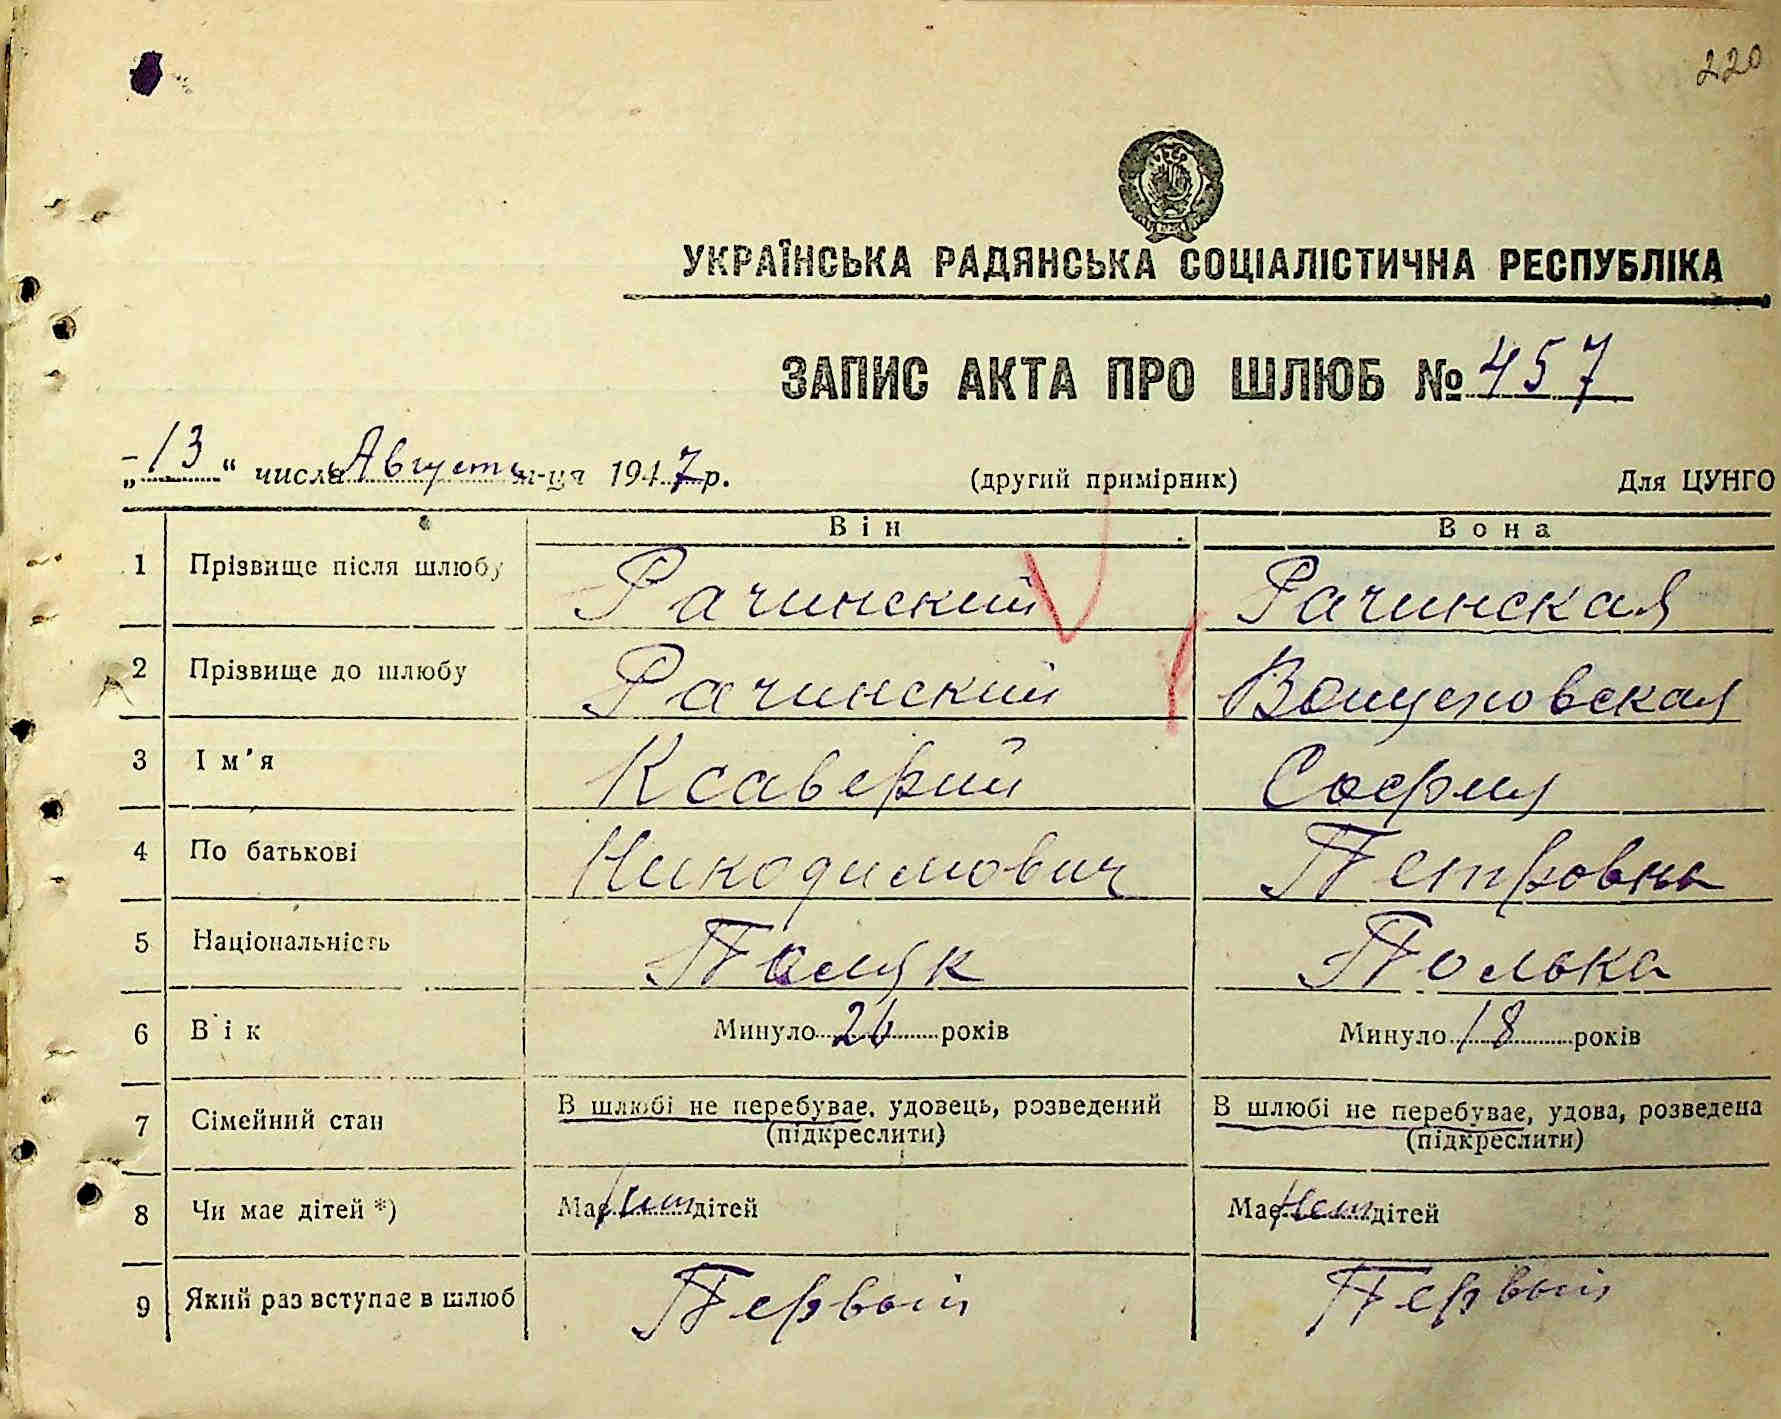 220
УКРАЇНСЬКА РАДЯНСЬКА СОЦІАЛІСТИЧНА РЕСПУБЛІКА
ЗАПИС АКТА ПРО ШЛЮБ № 457
„13“ числа Августа м-ця 1947 р. (другий примірник) Для ЦУНГО
Він Вона
1 Прізвище після шлюбу Рачинский Рачинская
2 Прізвище до шлюбу Рачинский
3 Ім'я Ксаверий София
4 По батькові Никодимович Петровна
5 Національність Поляк Полька
6 Вік Минуло 26 років Минуло 18 років
7 Сімейний стан В шлюбі не перебуває, удовець, розведений В шлюбі не перебуває, удова, розведена
(підкреслити) (підкреслити)
8 Чи має дітей *) Має Нет дітей Має Нет дітей
9 Який раз вступає в шлюб Первый Первый